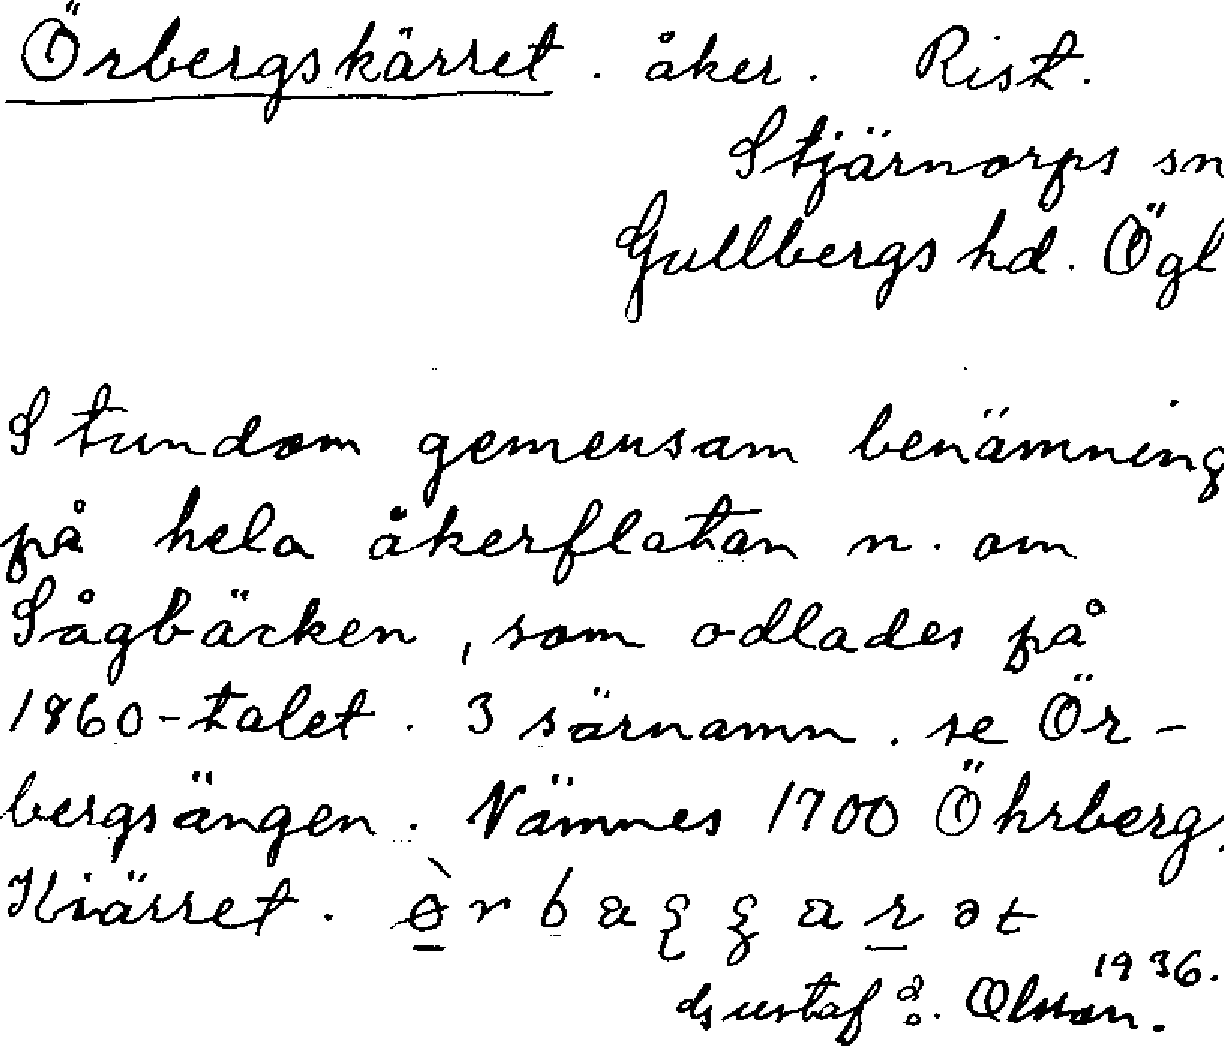 Örbergskärret. åker. Rist.
Stjärnorps sn
Gullbergs hd. Ögl
Stundom gemensam benämning
på hela åkerflatan n. om
Sågbäcken, som odlades på
1860-talet. 3 särnamn. se Ör-
bergsängen. Nämnes 1700 Öhrberg
Kiärret.
1936.
Gustaf Olsson.